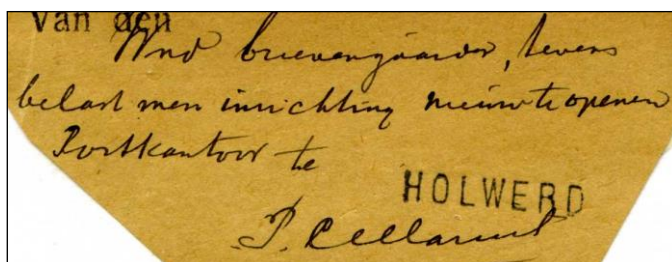 Van den
Wnd brievengaarder, tevens
belast men inrichting nieuw te openen
Postkantoor te
HOLWERD
P.